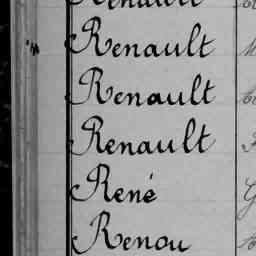 Renault
Renault
Renault
Renault
René
Renou